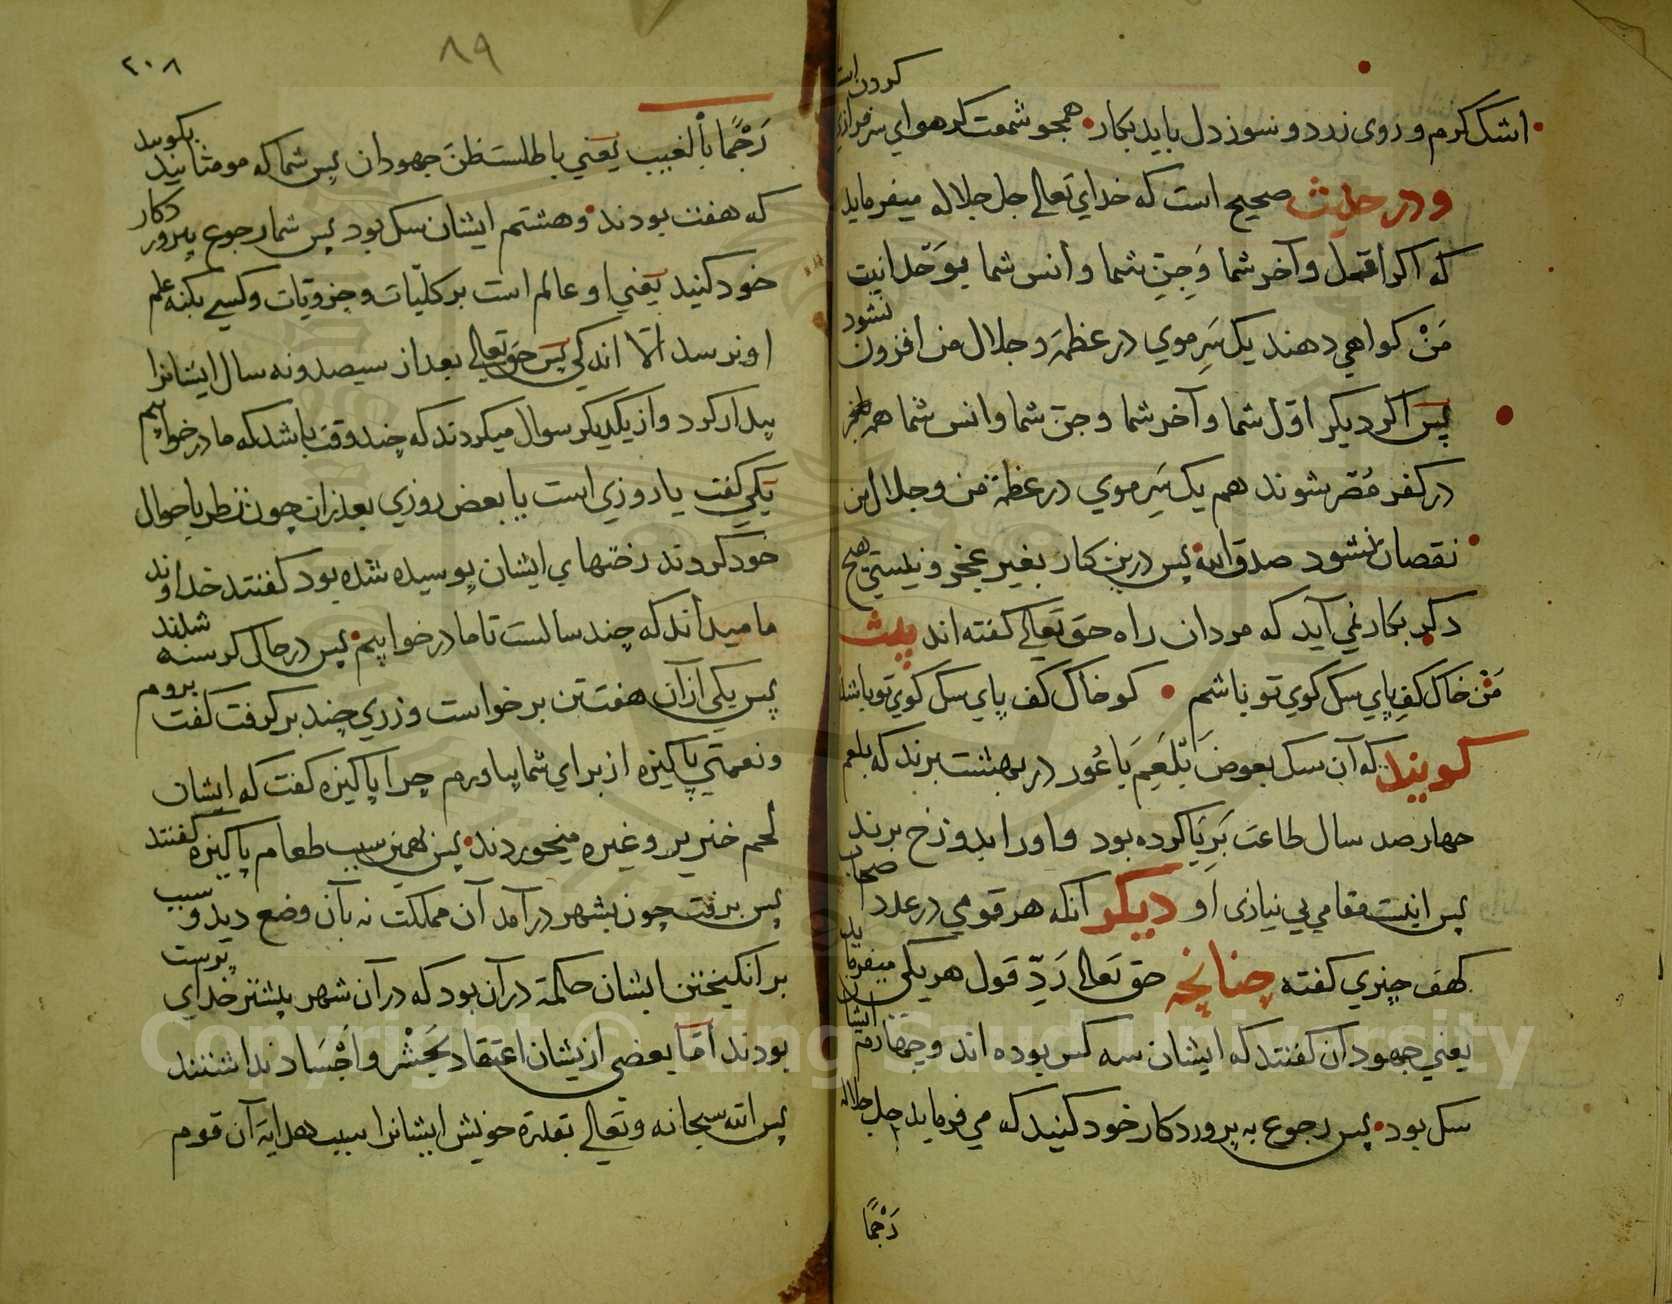 اشک گرم و روی زرد و سوز دل باید بکار همچو شمعت گر هوای سرفرازی کردن است
و در حدیث صحیح است که خدای تعالی جل جلاله میفرماید
که اگر اوّل و آخر شما وَ جِنّ شما و اُنس شما بوَحدانیت
مَنْ کواهی دهند یک سَرِ موی در عظمة و جلال من افزون نشود
پس اکر دیکر اوّل شما و آخر شما و جن شما و انس شما همه
در کفر مُصّر شوند هم یک سَرِ موی در عظمة من و جلال من
نقصان نشود صدق الله پس درین کار بغیر عجز و نیستی هیچ
دکر بکار نمی آید که مردان راه حق تعالی کفته اند بیت
مَنْ خاک کفِ پای سک کوی تو باشم کو خاک کف پای سک کوی تو باشد
کویند که آن سک بعوض بَلْعَم بَاعُور در بهشت برند که بلعم
چهار صد سال طاعت بَرِیَا کرده بود و اورا بدوزخ برند
پس اینست مقام بی نیازی او دیکر آنکه هر قومی در عدد اصحاب
کهف چیزی کفته چنانچه حق تعالی رَدِّ قول هر یکی میفرماید
یعنی جهودان کفتند که ایشان سه کس بوده اند و چهارم ایشان
سک بود پس رجوع به پروردکار خود کنید که می فرماید جل جلاله
رَجْمًا
٨٩
٢٠٨
رَجْمًا بالْغیب یعنی باطلست ظنّ جهودان پس شما که مومنانید بکویید
که هفت بودند و هشتم ایشان سک بود پس شما رجوع بپروردکار
خود کنید یعنی او عالم است بر کلّیات و جزویات و کسی بکنه علم
او نرسد الّا اندکی پس حق تعالی بعد از سیصد و نه سال ایشانرا
بیدار کرد و از یکدیکر سوال میکردند که چند وقت باشد که ما در خوابیم
یکی کفت یا روزی است یا بعض روزی بعد ازان چون نظر باحوال
خود کردند رختهای ایشان پوسیده شده بود کفتند خداوند
ما میداند که چند سالست تا ما در خوابیم پس در حال کرسنه شدند
پس یکی از آن هفت تن برخواست و زری چند بر کرفت کفت بروم
و نعمتی پاکیزه از برای شما بیاورم چرا پاکیزه کفت که ایشان
لحم خنزیر و غیره میخوردند پس بهمین سبب طعام پاکیزه کفتند
پس برفت چون بشهر در آمد آن مملکت نه بآن وضع دید و سبب
بر انکیختن ایشان حکمة در آن بود که در آن شهر پیشتر خدای پرست
بودند امّا بعضی ازیشان اعتقاد بحَشْر و اجْسَاد نداشتند
پس الله سبحانه و تعالی بقدرة خویش ایشانرا سبب هدایة آن قوم
Copyright © King Saud University